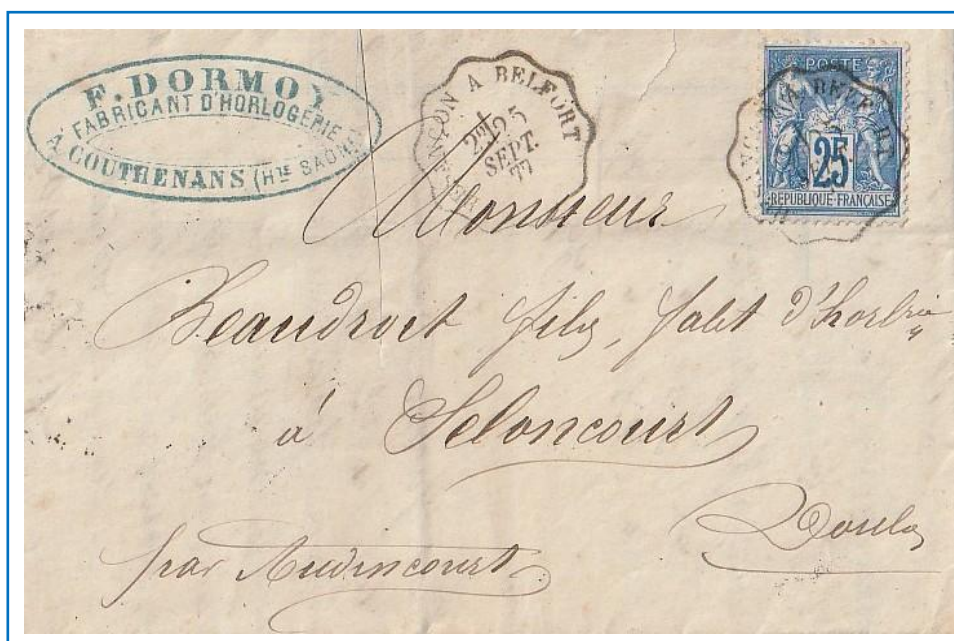 F. DORMOY
FABRICANT D'HORLOGERIE
A COUTHENANS (HTE SAONE)
BESANÇON A BELFORT
2E 25
SEPT.
77
POSTE
25
REPUBLIQUE FRANÇAISE
Monsieur
Beaudroit fils, fabt d'horlrie
à Seloncourt
Doubs
par Audincourt